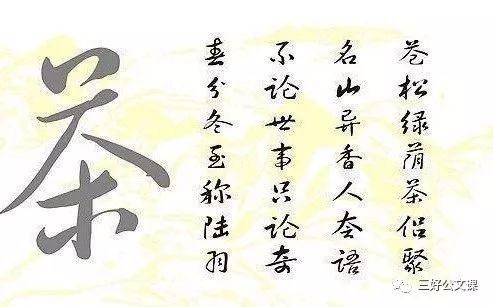 苍松绿荫茶侣聚
名山异香人语
不论世事只论奇
春分冬至称陆羽
茶
三好公文课